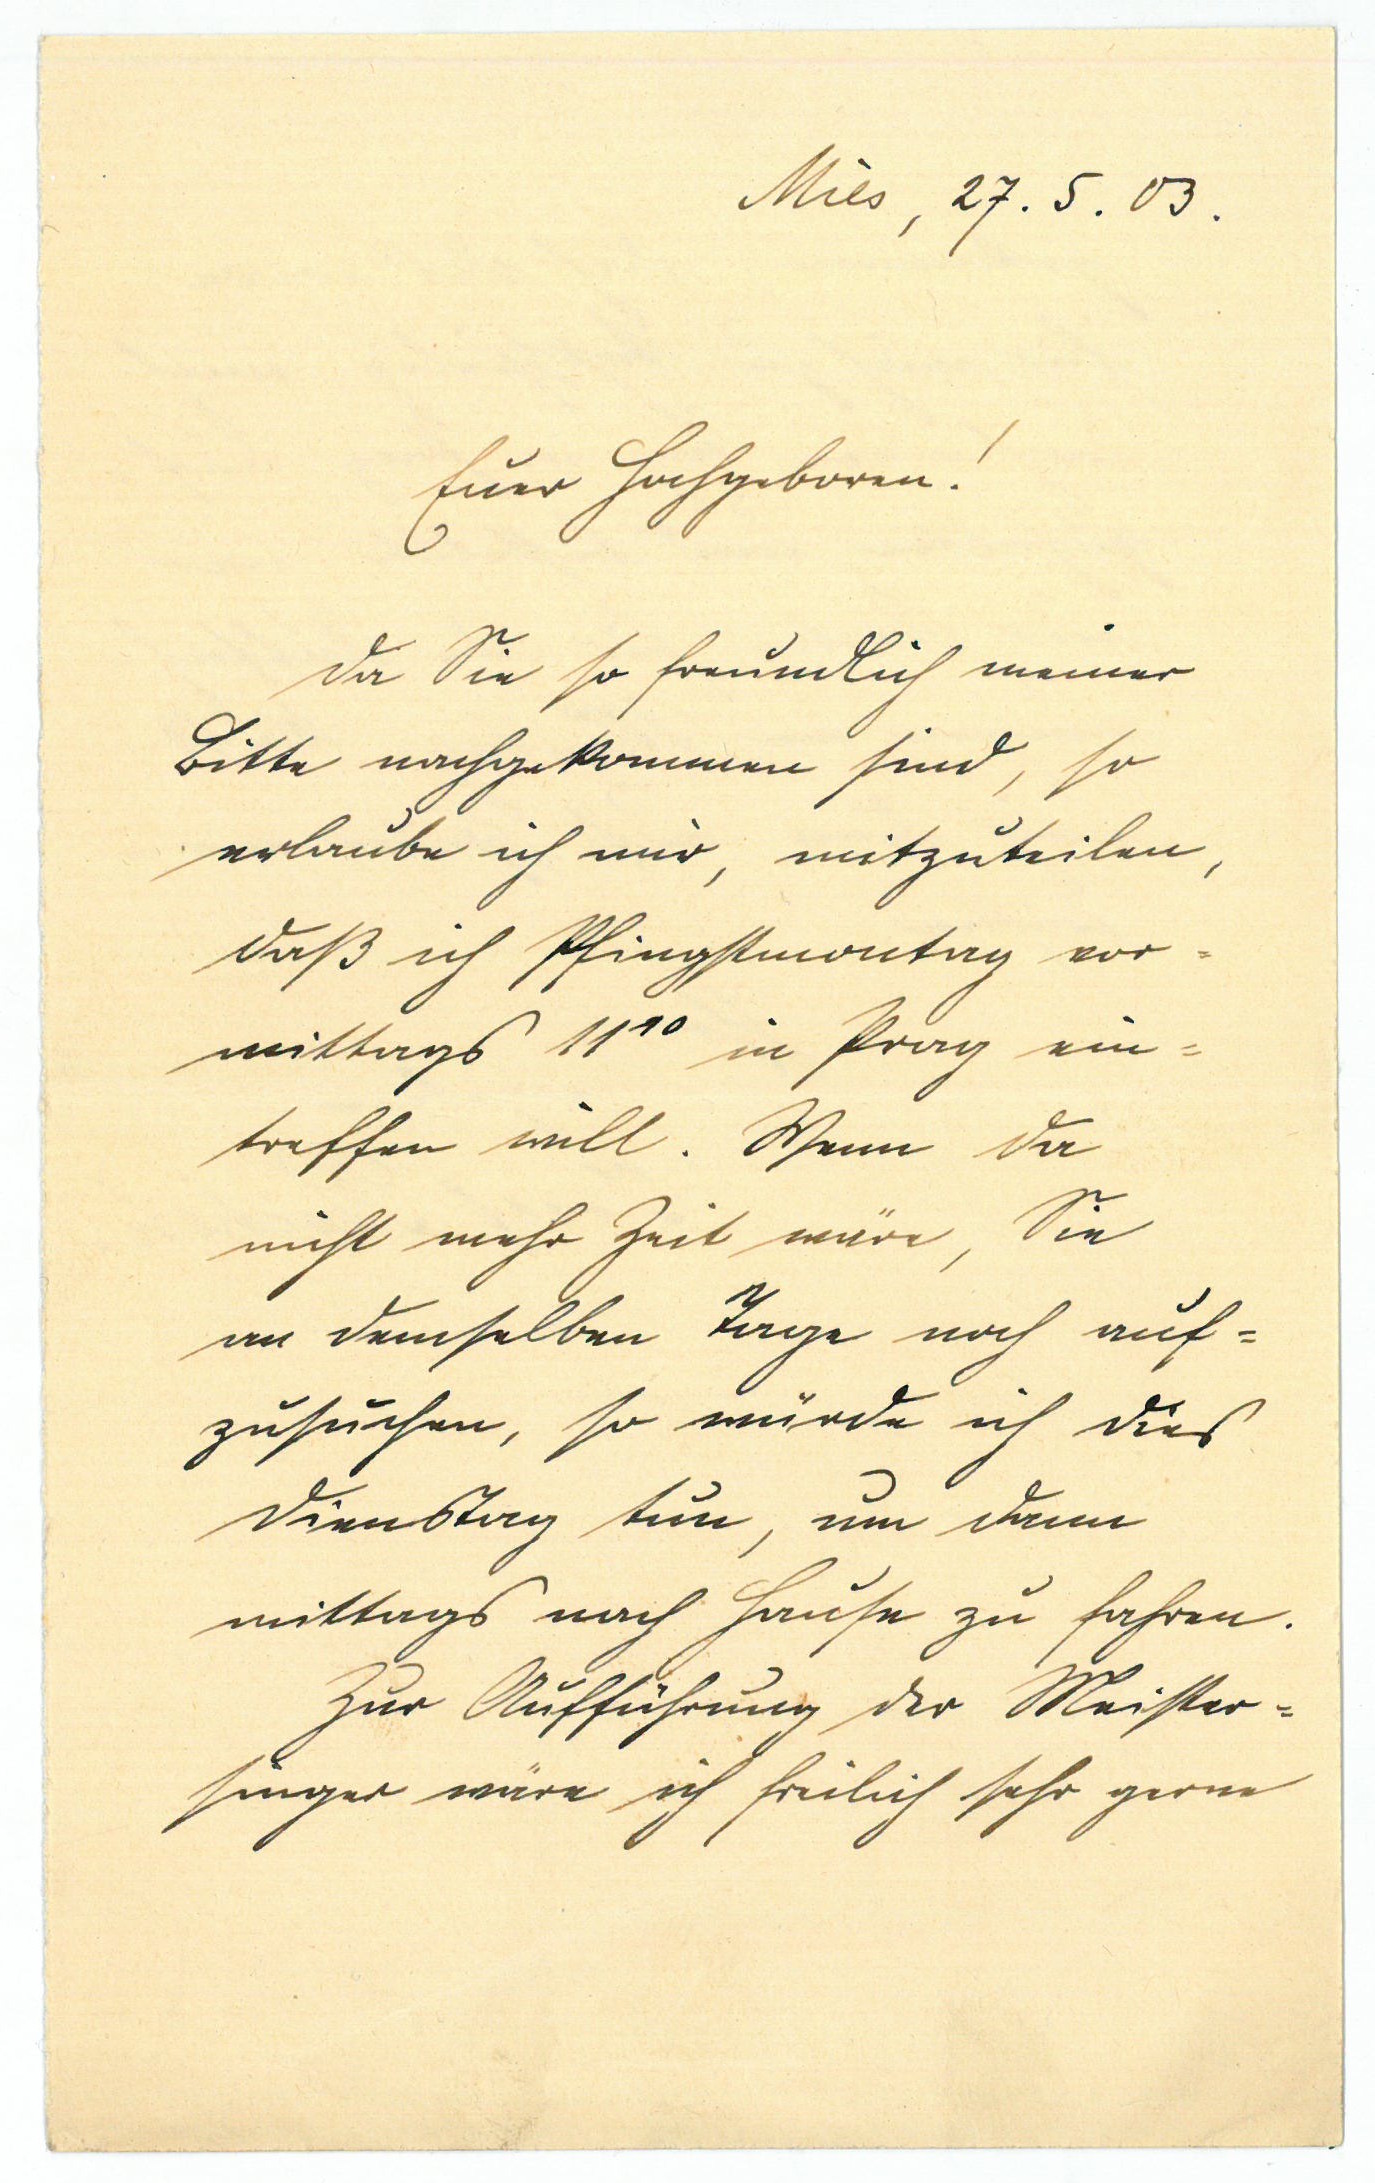 Mies, 27. 5. 03.
Euer Hochgeboren!
Da Sie so freundlich meiner
Bitte nachgekommen sind, so
erlaube ich mir, mitzuteilen,
daß ich Pfingstmontag vor=
mittags 11¹⁰ in Prag ein=
treffen will. Wenn da
nicht mehr Zeit wäre, Sie
an demselben Tage noch auf=
zusuchen, so würde ich dies
Dienstag tun, um dann
mittags nach Hause zu fahren.
Zur Aufführung der Meister=
singer wäre ich freilich sehr gerne